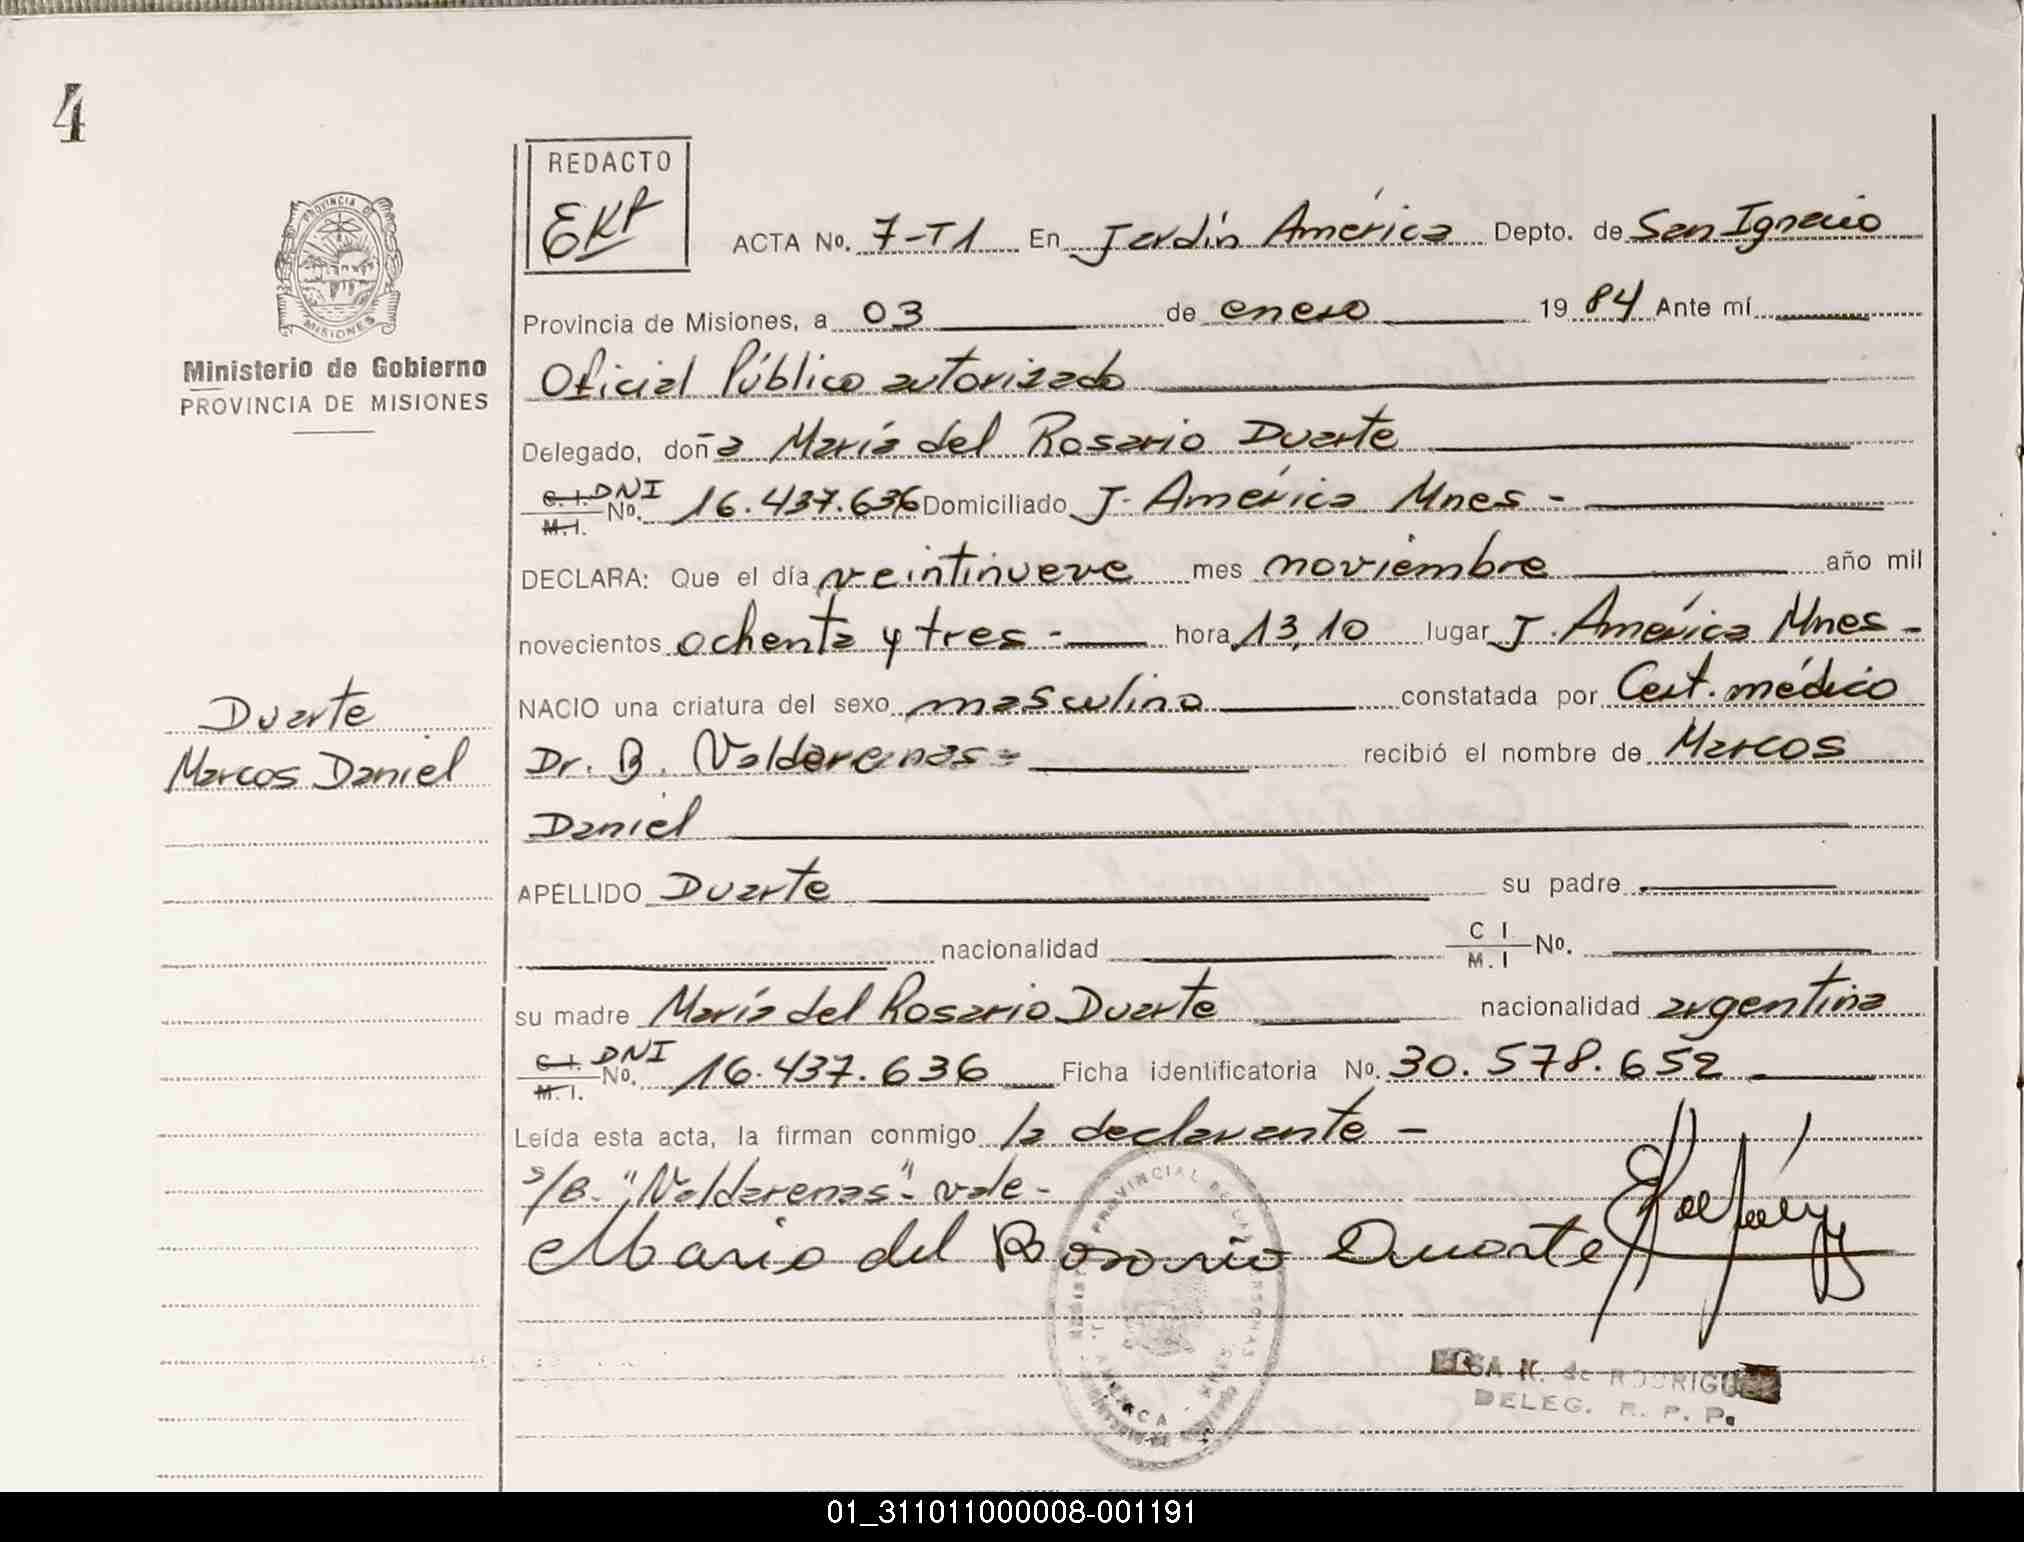 4
REDACTO
EKR
ACTA No. 7-T1 En Jardín América Depto. de San Ignacio
PROVINCIA DE
MISIONES
Provincia de Misiones, a 03 de enero 1984 Ante mí
Ministerio de Gobierno
PROVINCIA DE MISIONES
Oficial Público autorizado
Delegado, doña María del Rosario Duarte
C. I. DNI
M. I. No. 16.437.636 Domiciliado J. América Mnes -
DECLARA: Que el día veintinueve mes noviembre año mil
novecientos ochenta y tres - hora 13,10 lugar J. América Mnes -
Duarte
Marcos Daniel
NACIO una criatura del sexo masculino constatada por Cert. médico
Dr. B. Valdarenas = recibió el nombre de Marcos
Daniel
APELLIDO Duarte su padre
nacionalidad C I
M. I No.
su madre María del Rosario Duarte nacionalidad argentina
C. I. DNI
M. I. No. 16.437.636 Ficha identificatoria No. 30.578.652
Leída esta acta, la firman conmigo la declarante -
s/B. "Valdarenas" - vale -
Maria del Rosario Duarte
de RODRIGU
DELEG. R. P. P.
01_311011000008-001191